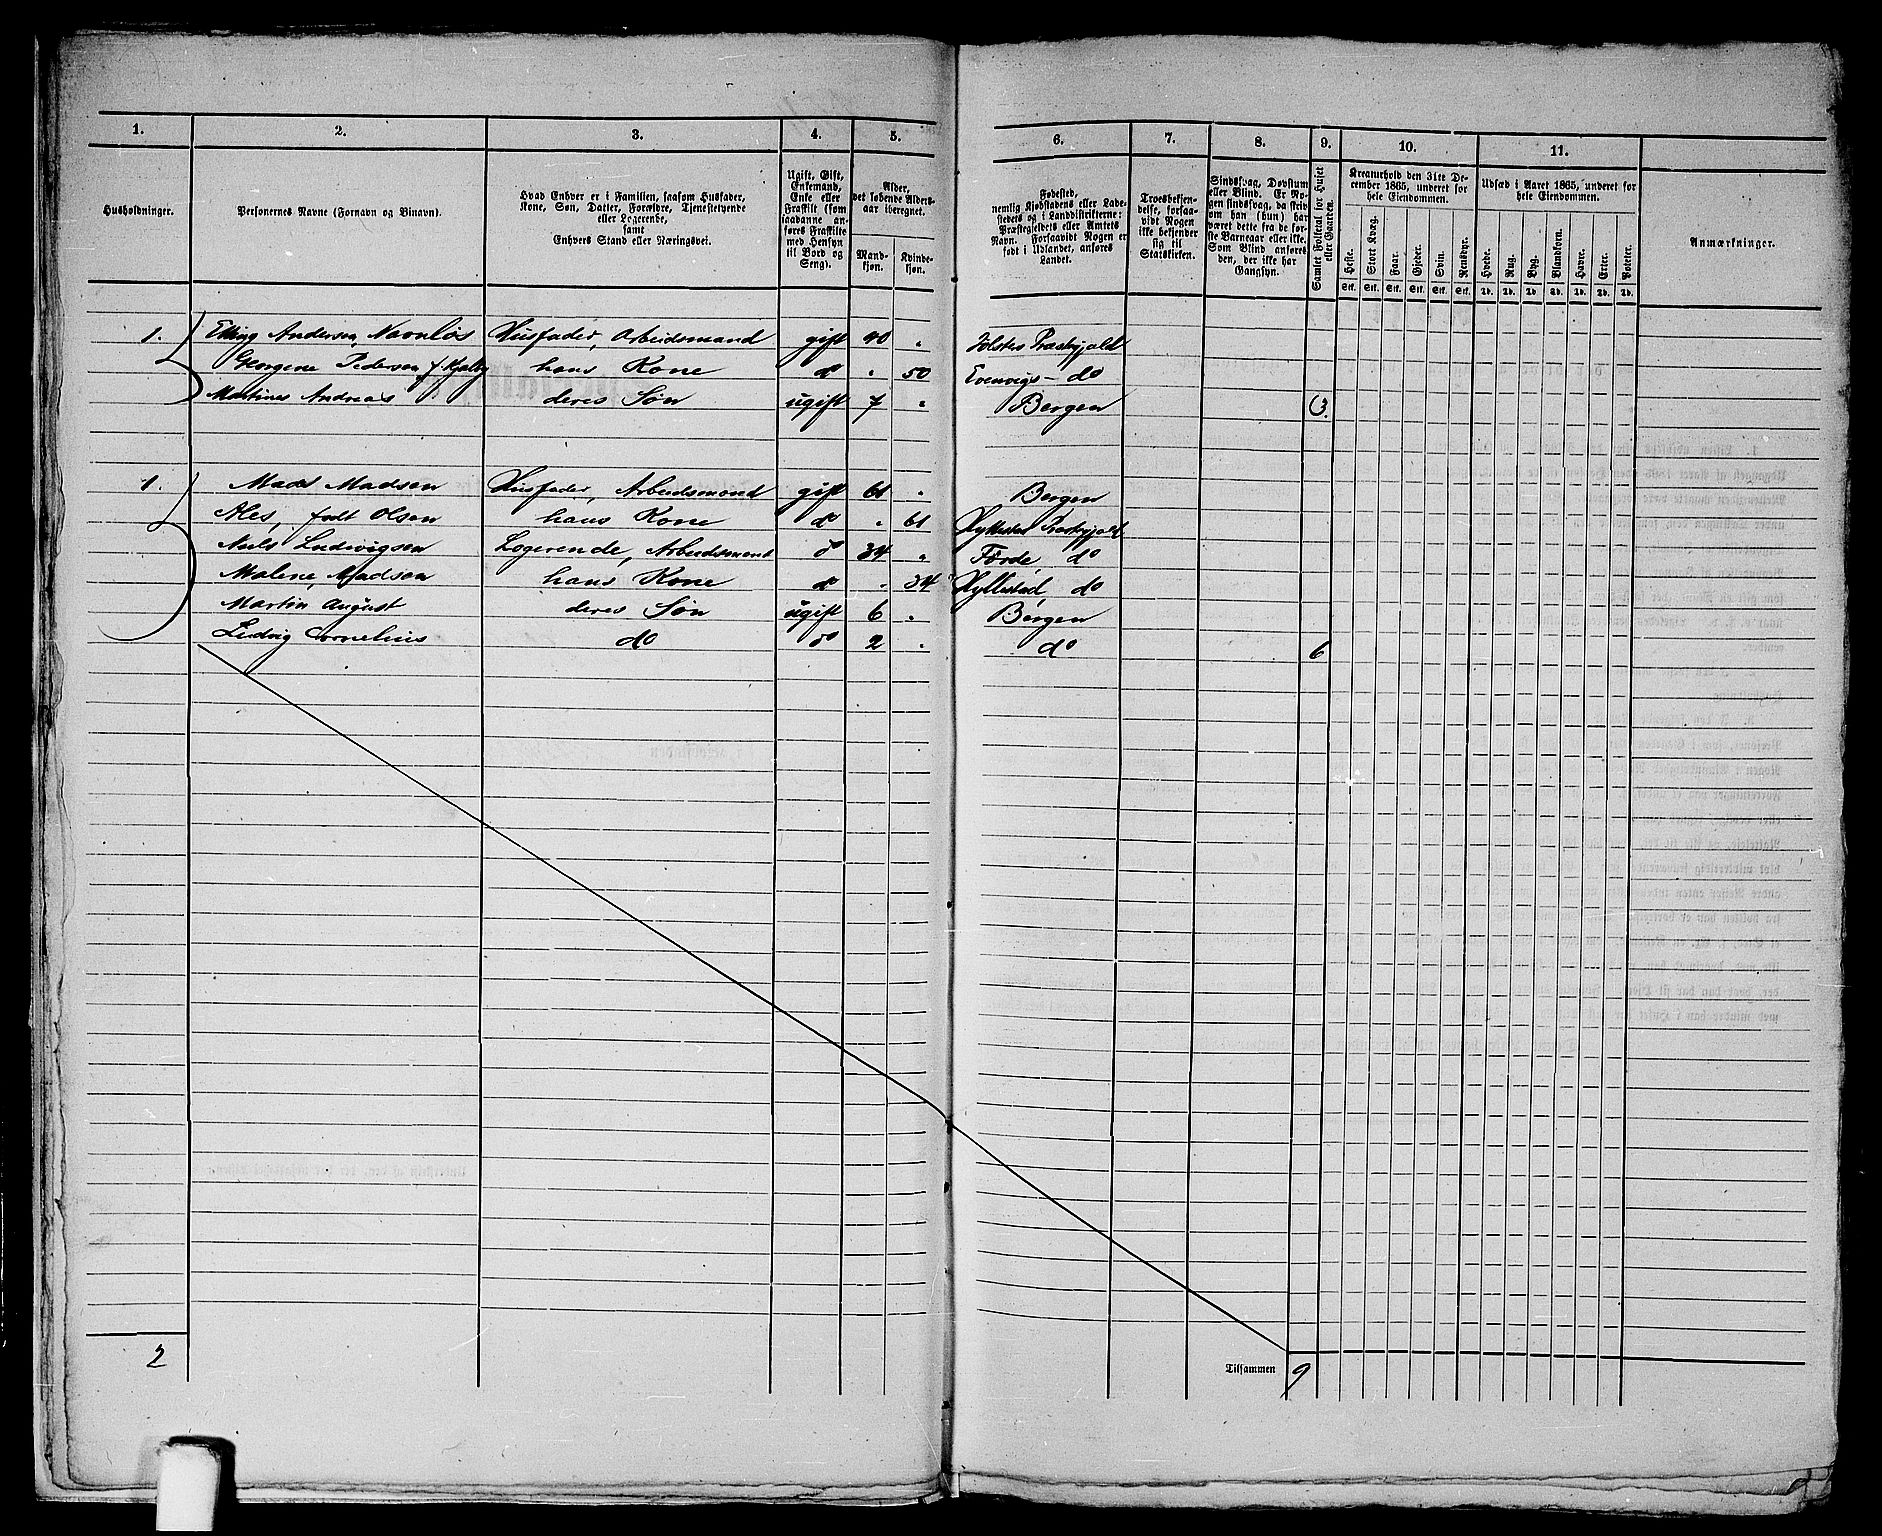 1. 2. 3. 4. 5. 6. 7. 8. 9. 10. 11.
Husholdninger.
Personernes Navne (Fornavn og Binavn).
Hvad Enhver er i Familien, saasom Husfader,
Kone, Søn, Datter, Forældre, Tjenestetyende
eller Logerende,
samt
Enhvers Stand eller Næringsvei.
Ugift, Gift,
Enkemand,
Enke eller
Fraskilt (som
saadanne an-
føres Fraskilte
med Hensyn
til Bord og
Seng).
Alder,
det løbende Alders-
aar iberegnet.
Mand-
kjøn.
Kvinde-
kjøn.
Fødested,
nemlig Kjøbstadens eller Lade-
stedets og i Landdistrikterne:
Præstegjeldets eller Amtets
Navn. Forsaavidt Nogen er
født i Udlandet, anføres
Landet.
Troesbekjen-
delse, forsaa-
vidt Nogen
ikke bekjender
sig til
Statskirken.
Sindssvag, Døvstum
eller Blind. Er No-
gen sindssvag, da skriv
om han (hun) har
været dette fra de før-
ste Barneaar eller ikke.
Som Blind anføres
den, der ikke har
Gangsyn.
Samlet Folketal for Huset
eller Gaarden.
Kreaturhold den 31te De-
cember 1865, underet for
hele Eiendommen.
Heste. Stort Kvæg. Faar. Gjeder. Svin. Rensdyr.
Stk. Stk. Stk. Stk. Stk. Stk.
Udsæd i Aaret 1865, underet for
hele Eiendommen.
Hvede. Rug. Byg. Blandkorn. Havre. Erter. Poteter.
Td. Td. Td. Td. Td. Td. Td.
Anmærkninger.
1. Elling Andersen Navnløs Husfader, Arbeidsmand gift 40 " Præstegjæld
Georgene Pedersen f. hans Kone do " 50 Evenvigs - do
Martines Andreas deres Søn ugift 7 " Bergen 3.
1. Mads Madsen Husfader, Arbeidsmand gift 61 " Bergen
Ales, født Olsen hans Kone do " 61 Hyllestad Præstegjæld
Niels Ludvigsen Logerende, Arbeidsmand do 34 " Førde, do
Malene, Madsen hans Kone do " 34 Hyllestad do
Martin August deres Søn ugift 6 " Bergen
Ludvig Cornelius do do 2 " do 6
2 Tilsammen 9